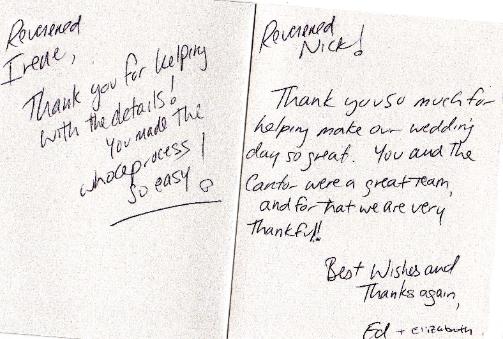 Reverened
Irene,
Thank you for helping
with the details!
You made the
whole process
so easy!
Reverened
Nick!
Thank you so much for
helping make our wedding
day so great. You and the
Cantor were a great team,
and for that we are very
thankful!!
Best Wishes and
Thanks again,
Ed + Elizabeth